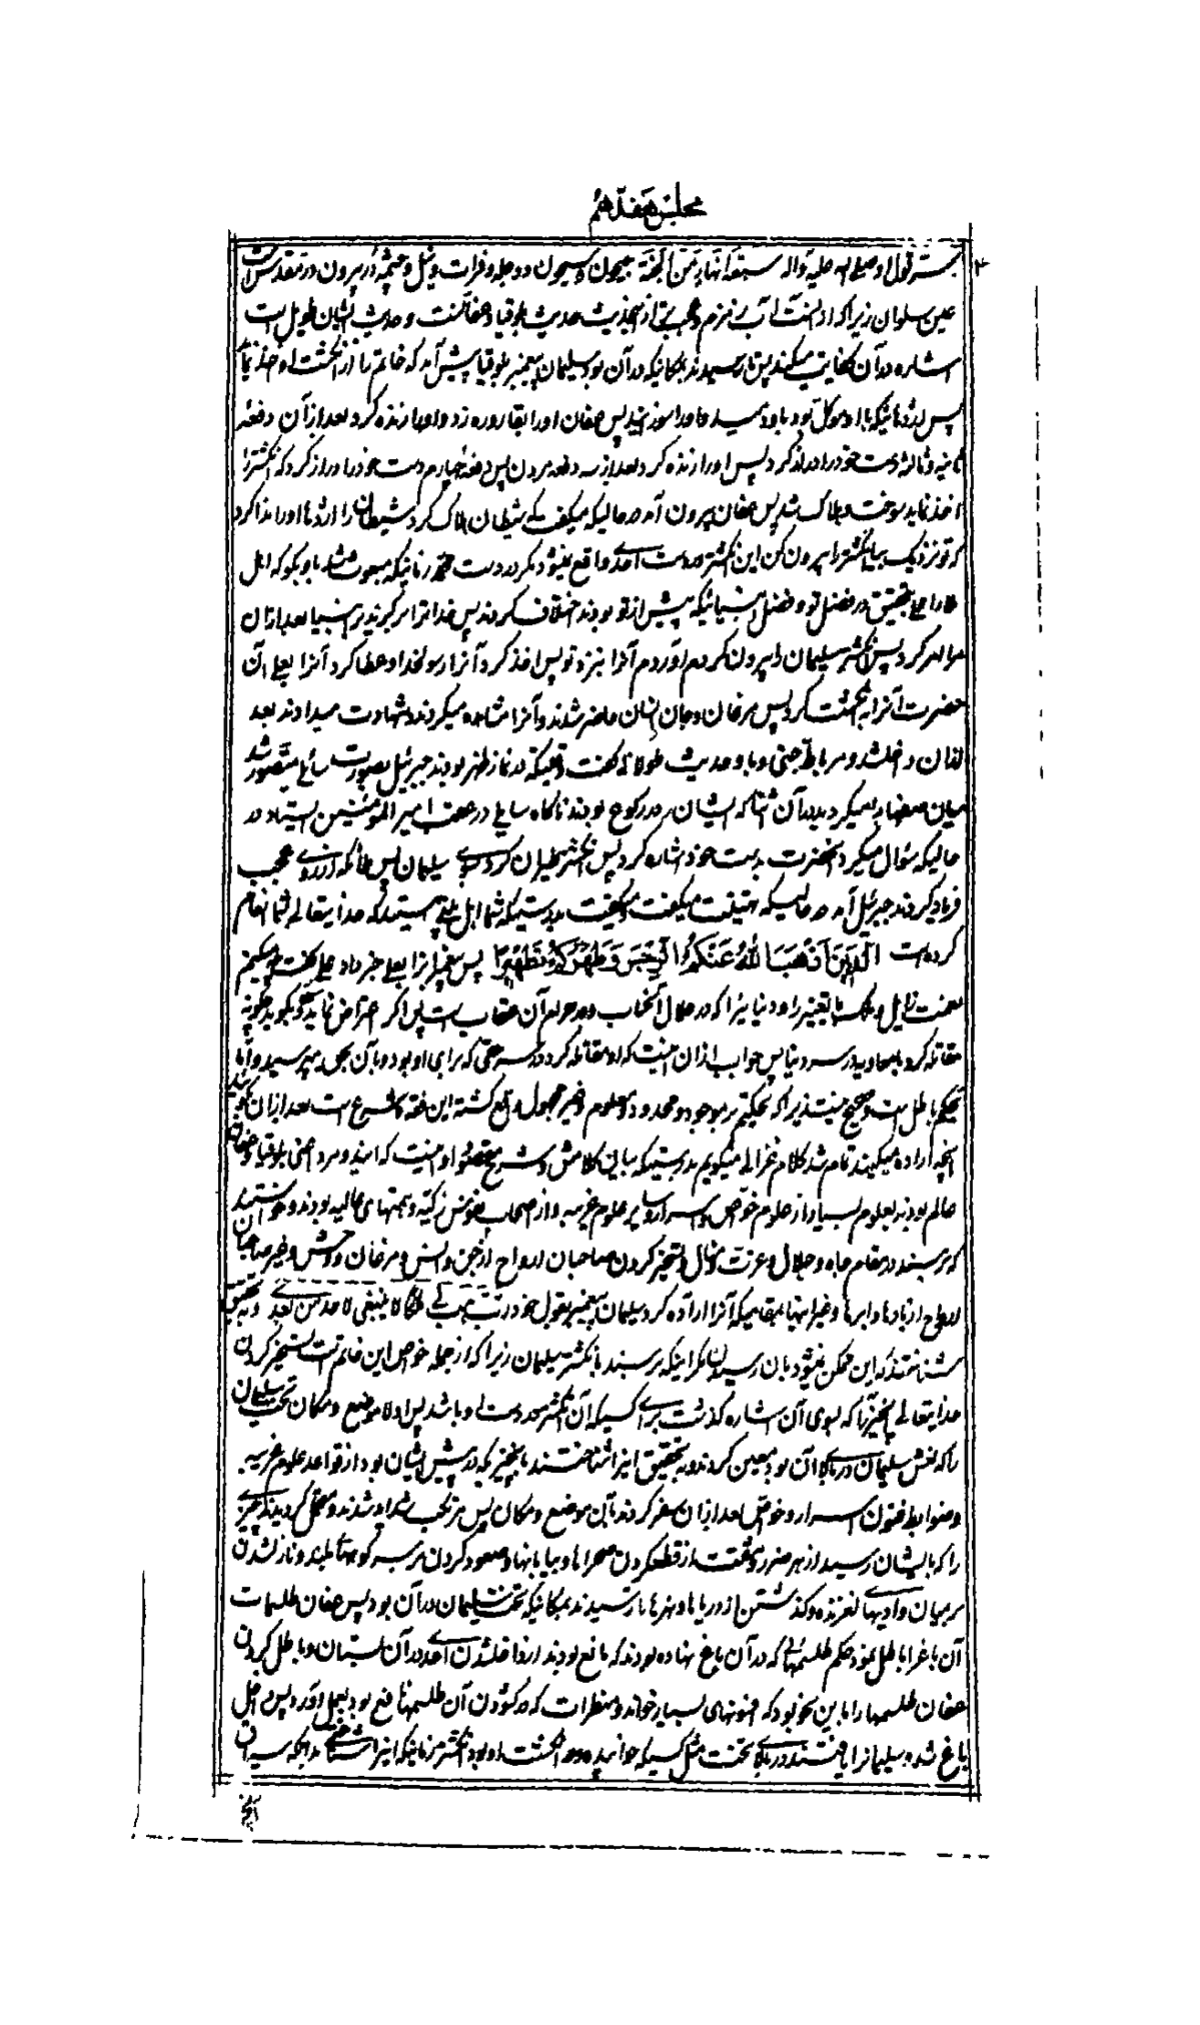 مجلس هفدهم
قول او صلی الله علیه وآله سبعة انهار من الجنة جیحون و سیحون و دجله و فرات و نیل و چشمه در بیرون در مقدس است
عین سلوان زیرا که از آنست آب زمزم و حدیث بلوقیا و عفانست و حدیث ایشان طویل است
اشاره در آن کفایت میکند پس تا رسیدند بمکانیکه در آن بود سلیمان پیغمبر بلوقیا پیش آمد که خاتم را از انگشت او اخذ نماید
پس اژدهائیکه با او موکل بود باو دمید و او را سوزانید پس عفان او را بقاروره زد و او را زنده کرد بعد از آن دفعه
ثانیه و ثالثه دست خود را دراز کرد پس او را زنده کرد بعد از سه دفعه مردن پس دفعه چهارم دست خود را دراز کرد که انگشتر را
اخذ نماید سوخت و هلاک شد پس عفان بیرون آمد در حالیکه میگفت که شیطان هلاک کرد شیطان را اژدها او را ندا کرد
که تو نزدیک بیا انگشتر را بیرون کن این انگشتر در دست احدی واقع نمیشود مگر در دست محمد زمانیکه مبعوث شد باو بگو که اهل
ملاء اعلی بتحقیق در فضل تو و فضل انبیائیکه پیش از تو بودند اختلاف کردند پس خدا ترا برگزید بر انبیا بعد از آن
مرا امر کرد پس انگشتر سلیمان را بیرون کردم آوردم آنرا بنزد تو پس اخذ کرد آنرا رسولخدا و عطا کرد آنرا بعلی آن
حضرت آنرا بانگشت کرد پس مرغان و جان انسان حاضر شدند و آنرا مشاهده میکردند و شهادت میدادند بعد
از آن داخل شد و حدیث طولانی گفت وقتیکه در نماز ظهر بودند جبرئیل بصورت سائلی متصور شد
میان صفها میگردید در آن اثنا که ایشان در رکوع بودند ناگاه سایلی در عقب امیر المؤمنین ایستاد در
حالیکه سؤال میکرد آنحضرت بدست خود اشاره کرد پس انگشتر طیران کرد بسوی سلیمان پس ملائکه از روی عجب
فریاد کردند جبرئیل آمد در حالیکه تهنیت میگفت و میگفت بدرستیکه شما اهل بیتی هستید که خدایتعالی بشما انعام
کرده است الَّذِینَ اَذْهَبَ اللهُ عَنْکُمُ الرِّجْسَ وَطَهَّرَکُمْ تَطْهِیرًا پس پیغمبر از آن بعلی خبر داد علی گفت چه میکنیم
نعمت زایل و ملک با تغییر را و دنیا نیز که در حلال آن حساب و در حرام آن عقاب است پس اگر اعتراض نماید و بگوید چگونه
مقاتله کرد با معاویه در سر دنیا پس جواب از آن اینست که او مقاتله کرد در سر حقی که برای او بود و بآن بحق میرسید و اما
تحکیم باطل است و صحیح نیست زیرا که تحکیم بر موجود و محدود و معلوم و غیر مجهول واقع گشته این فقه شرع است بعد از آن بگوئید
آنچه اراده میکنید تمام شد کلام غزالی میگویم بدرستیکه بیان کلامش و شرح مقصود او اینست که این دو مرد اعنی بلوقیا و عفان
عالم بودند بعلوم بسیار از علوم خواص و اسرار و سایر علوم غریبه و از اصحاب نفوس زکیه و همتهای عالیه بودند و خواستند
که برسند در مقام جاه و جلال و عزت و مال و تسخیر کردن صاحبان ارواح از جن و انس و مرغان و وحش و غیر صاحبان
ارواح از بادها و ابرها و غیر اینها بمقامیکه آنرا اراده کرد سلیمان پیغمبر بقول خود رب هب لی ملکا لا ینبغی لاحد من بعدی و بتحقیق
شناختند که این ممکن نمیشود بآن رسیدن مگر اینکه برسند بانگشتر سلیمان زیرا که از جمله خواص این خاتم است تسخیر کردن
خدایتعالی چیزیرا که بسوی آن اشاره گذشت برای کسیکه آن انگشتر در دست او باشد پس اولا موضع و مکان تخت سلیمان
را که نعش سلیمان در بالای آن بود معین کردند و بتحقیق اینرا شناختند بچیزیکه در پیش ایشان بود از قواعد علوم غریبه
و ضوابط فنون اسرار و خواص بعد از آن سفر کردند بآن موضع و مکان پس مرتکب شداید شدند و متحمل گردیدند چیزی
را که بایشان رسید از هر ضرر و مشقت از قطع کردن صحراها و بیابانها و صعود کردن بر سر کوههای بلند و نازل شدن
بر میان وادیهای لغزنده و گذشتن از دریاها و نهرها تا رسیدند بمکانیکه تخت سلیمان در آن بود پس عفان طلسمات
آن باغ را باطل نمود حکم طلسمهائی که در آن باغ نهاده بودند که مانع بودند از داخلشدن احدی در آن بستان و باطل کردن
عفان طلسمها را باین نحو بود که افسونهای بسیار خواند و منظرات که در گشودن آن طلسمها نافع بود بعمل آورد پس داخل
باغ شده سلیمانرا یافتند در بالای تخت مثل کسیکه خوابیده و در انگشت او بود انگشتر زمانیکه اینرا شناختی بدانکه سیران
آنج